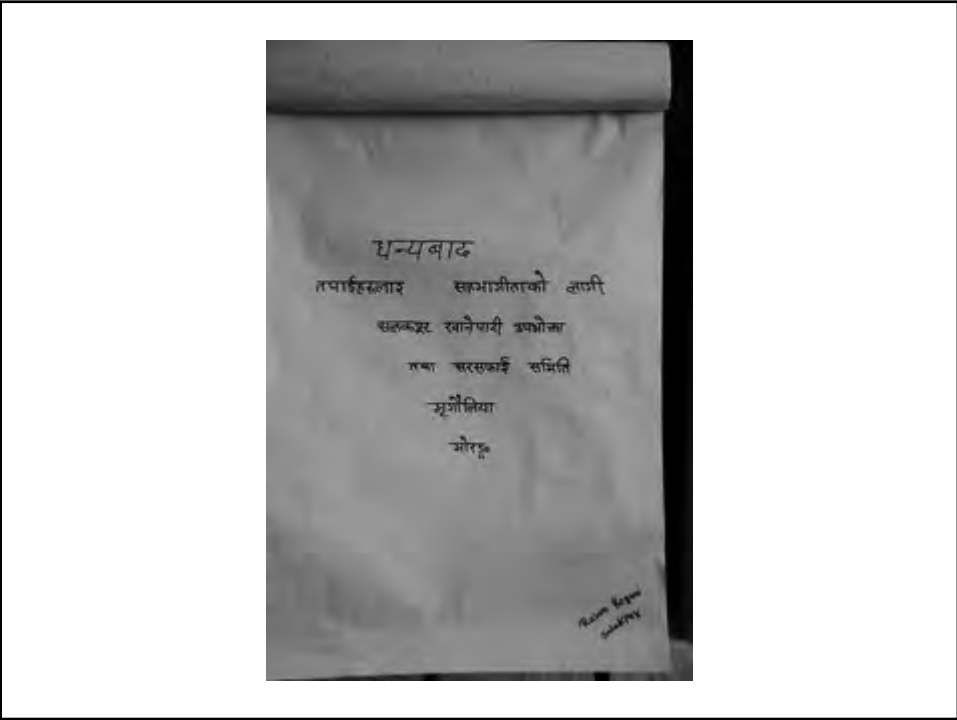 धन्यबाद
तपाईहरुलाइ सहभागीताको लागी
सलकपुर खानेपानी उपभोक्ता
तथा सरसफाई समिति
मृगौलिया
मोरङ्ग